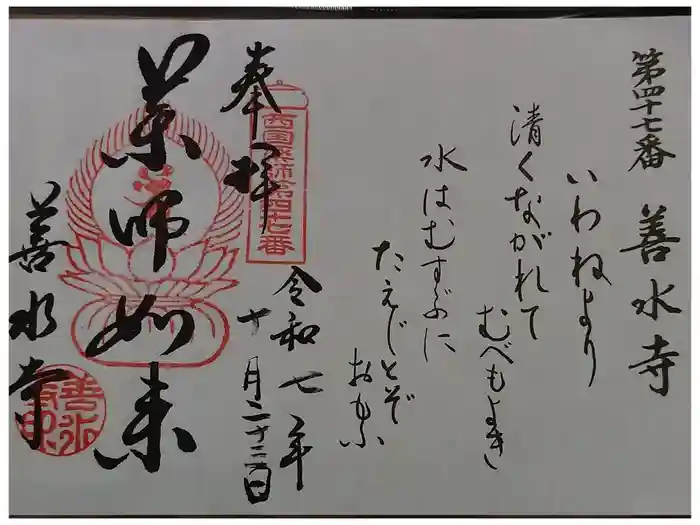 第四十七番 善水寺
いわねより
清くながれて
むべもよき
水はむすぶに
たえじとぞ
おもふ
奉拝
西国薬師第四十七番
令和七年
十月二十二日
薬師如来
善水寺